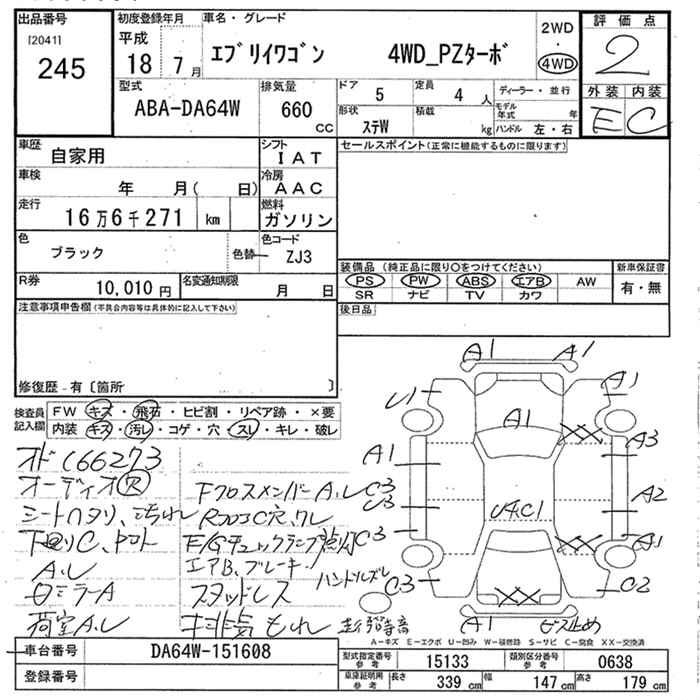 出品番号 初度登録年月 車名・グレード 2WD 評価点
[2041] 平成 エブリイワゴン 4WD_PZターボ 4WD 2
245 18 7月 外装 内装
型式 排気量 ドア 5 定員 4人 ディーラー・並行 E C
ABA-DA64W 660 CC 形状 ステW 積載 kg モデル年式 年 ハンドル 左・右
車歴 自家用 シフト IAT セールスポイント(正常に機能するものに限ります)
車検 年 月( 日) 冷房 AAC
走行 16万6千271 km 燃料 ガソリン
色 ブラック 色替 色コード ZJ3
装備品 (純正品に限り○をつけてください) 新車保証書
R券 10,010円 名変通知期限 月 日 PS PW ABS エアB AW 有・無
SR ナビ TV カワ
注意事項申告欄(不具合内容等は具体的に記入して下さい) 後日品
修復歴-有〔箇所 〕
検査員記入欄 FW キズ・飛石・ヒビ割・リペア跡・×要
内装 キズ・汚レ・コゲ・穴・スレ・キレ・破レ
オドC66273
オーディオ穴
シートハタリ、こちれ
A.レ
ロミラーA
荷室A.レ
FクロスメンバーA.レ
RフロアC穴、ワレ
E/Gチェックランプ点灯
エアB、ブレーキ
ハンドルズレ
スタッドレス
排気もれ
A1 A1
U1 A1
A1
A1 A3
C3
U3 A2
U4C1
C3 A1
C3 C2
XX
XX
XX
A1 ビス止め
A-キズ E-エクボ U-凹み W-補修跡 S-サビ C-腐食 XX-交換済
車台番号 DA64W-151608 型式指定番号 参考 15133 類別区分番号 参考 0638
登録番号 車庫証明用 参考 長さ 339 cm 幅 147 cm 高さ 179 cm